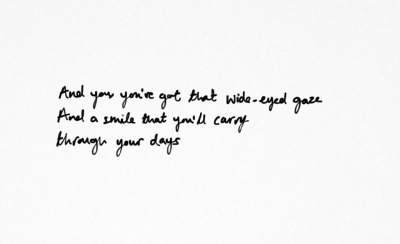 And you you've got that wide-eyed gaze
And a smile that you'll carry
through your days